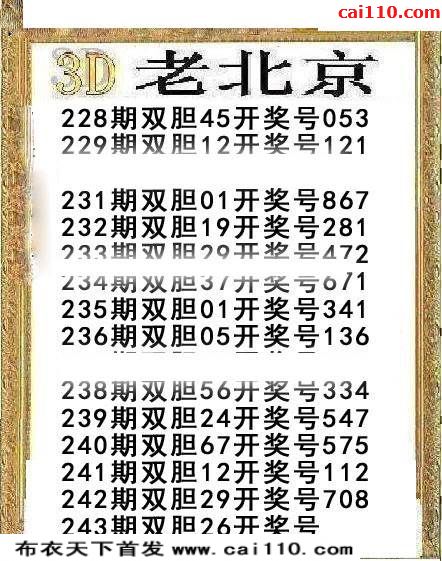 cai110.com
3D 老北京
228期双胆45开奖号053
229期双胆12开奖号121
231期双胆01开奖号867
232期双胆19开奖号281
233期双胆29开奖号472
234期双胆37开奖号671
235期双胆01开奖号341
236期双胆05开奖号136
238期双胆56开奖号334
239期双胆24开奖号547
240期双胆67开奖号575
241期双胆12开奖号112
242期双胆29开奖号708
243期双胆26开奖号
布衣天下首发 www.cai110.com